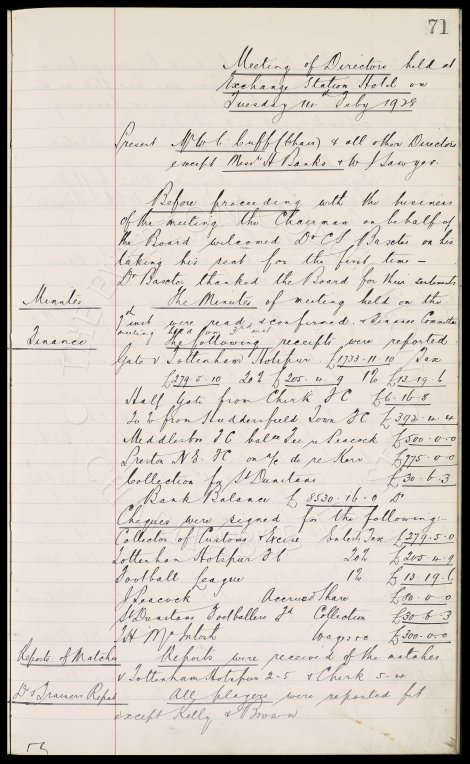 71
Meeting of Directors held at
Exchange Station Hotel on
Tuesday Feby 1928
Present Mr W C Cuff (Chair) & all other Directors
except Messrs H Banks & W J Sawyer.
Before proceeding with the business
of the meeting the Chairman on behalf of
the Board welcomed Dr C S Baxter on his
taking his seat for the first time —
Dr Baxter thanked the Board for their sentiments
Minutes The Minutes of meeting held on the
7th inst were read & confirmed. & Finance Committee
meeting held on 3rd inst
Finance The following receipts were reported.
Gate v Tottenham Hotspur £1733-11-10 Tax
£279.5.10 20% £205.4.9 1% £13.19.6
Half Gate from FC £6.16.8
from Huddersfield Town FC £392.4.4
Middlesbro FC balce Fee re Peacock £500.0.0
Preston N.E. FC on a/c do re Kerr £775.0.0
Collection for St Dunstans £30.6.3
Bank Balance £8530.16.0 Dr
Cheques were signed for the following:-
Collector of Customs & Excise balce Tax £279.5.0
Tottenham Hotspur FC 20% £205.4.9
Football League 1% £13.19.6
J Peacock Accrued Share
St Dunstans Footballers Fd Collection £30.6.3
H McIntosh Wages £300.0.0
Reports of Matches Reports were received of the matches
v Tottenham Hotspur 2-5 & 5.4
Dr & Trainers Report All players were reported fit
except Kelly & Brown